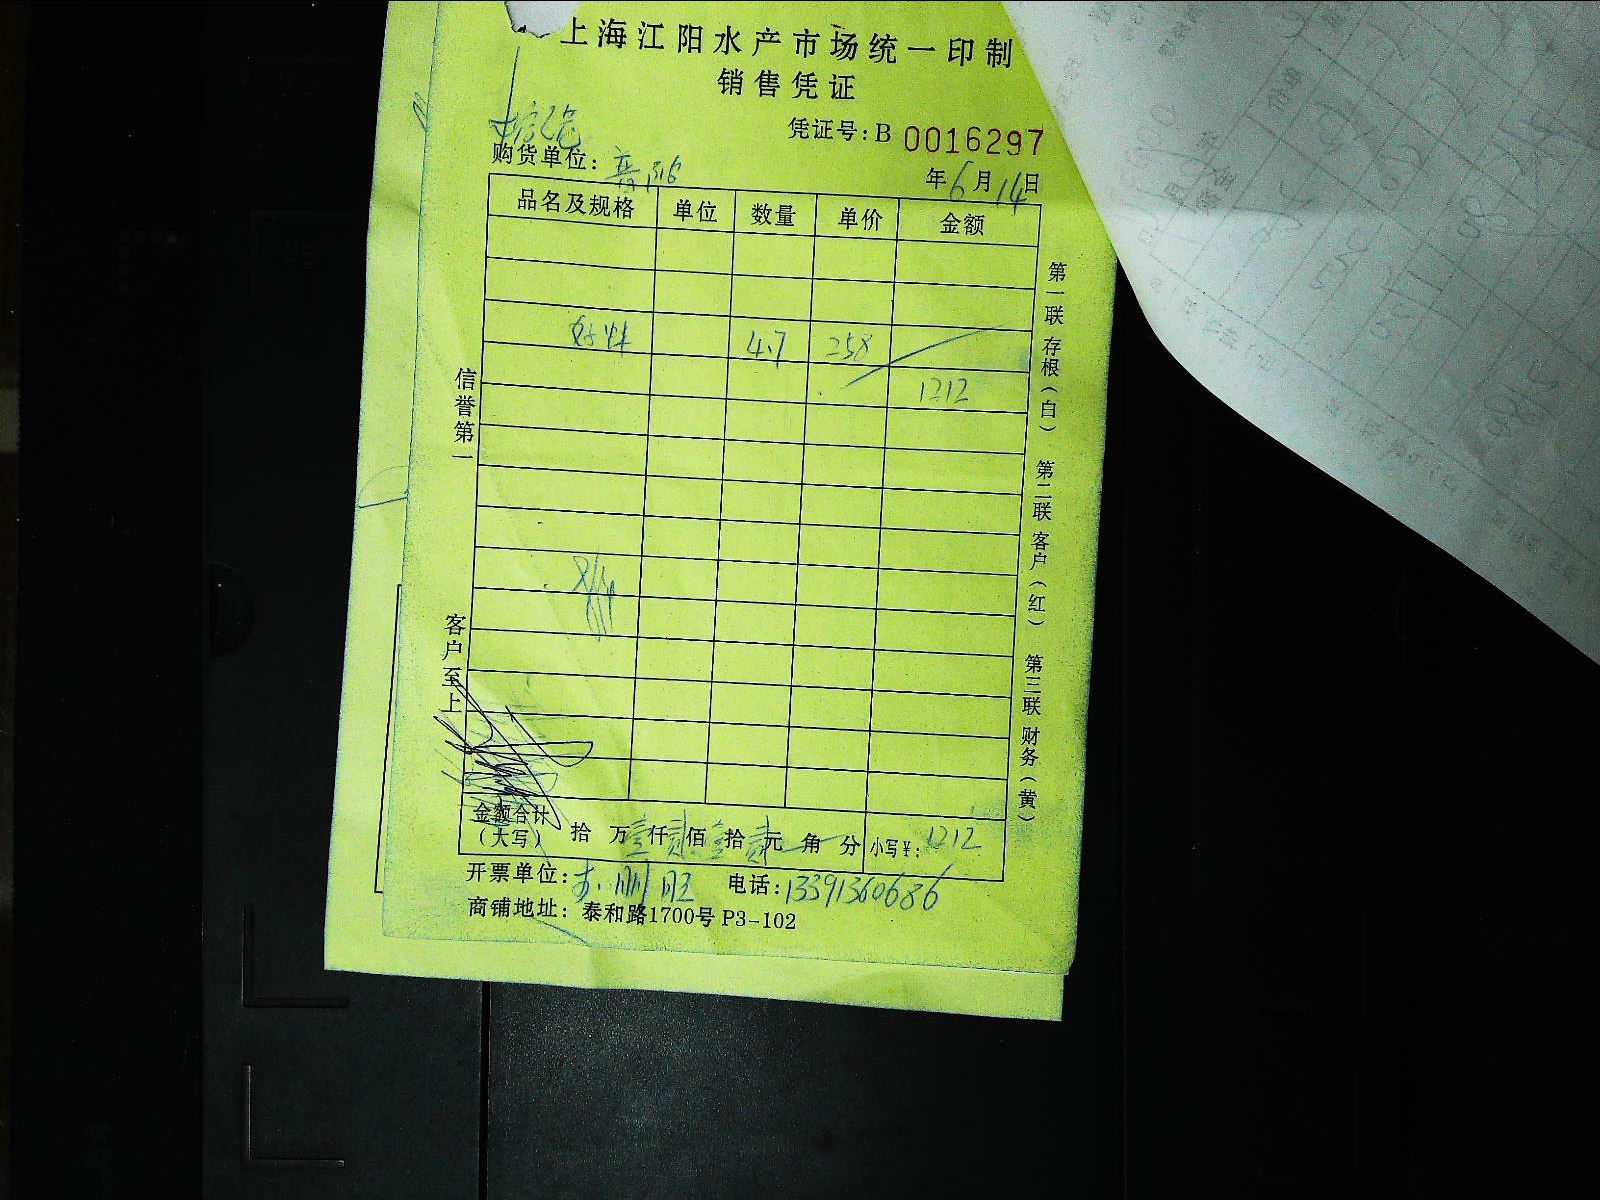 上海江阳水产市场统一印制
销售凭证
凭证号:B 0016297
购货单位:
年6月14日
品名及规格 单位 数量 单价 金额
4.7 258
1212
信誉第一
客户至上
第一联 存根(白) 第二联 客户(红) 第三联 财务(黄)
金额合计(大写) 拾 万壹仟贰佰壹拾贰元 角 分 小写¥:1212
开票单位: 电话:13391360686
商铺地址:泰和路1700号 P3-102